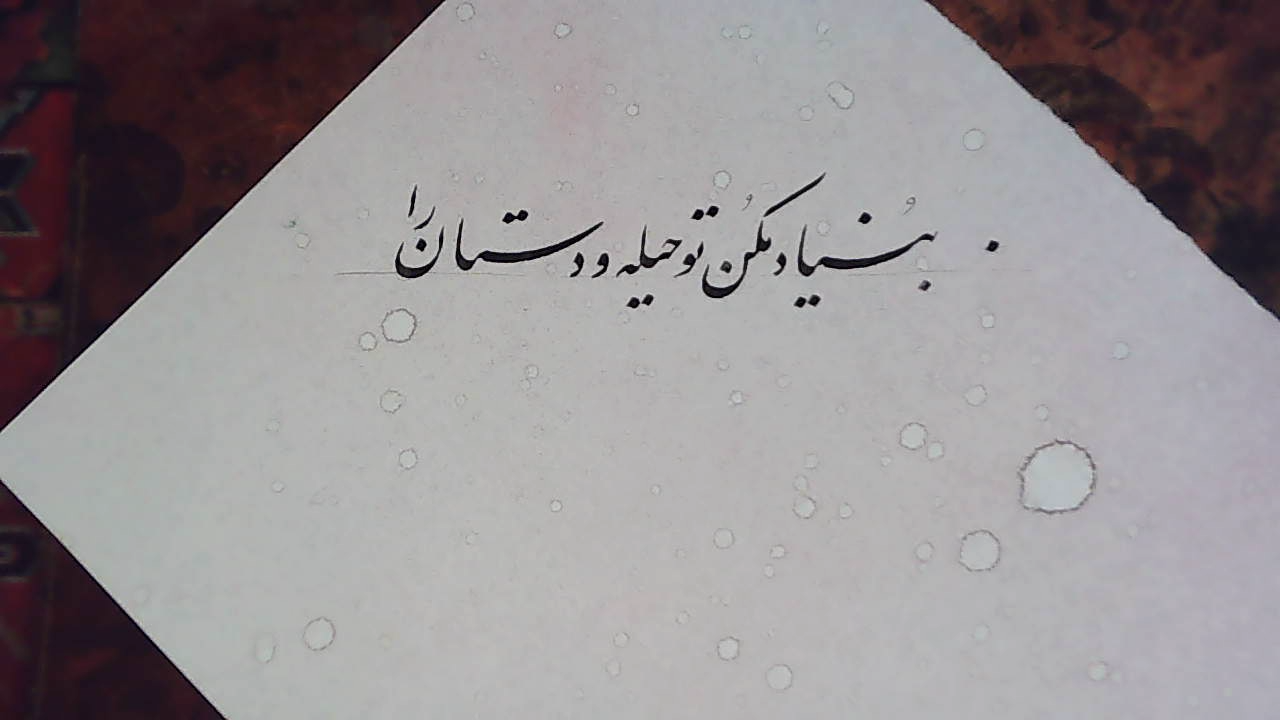 بُنیاد مکُن تو حیله و دستان را